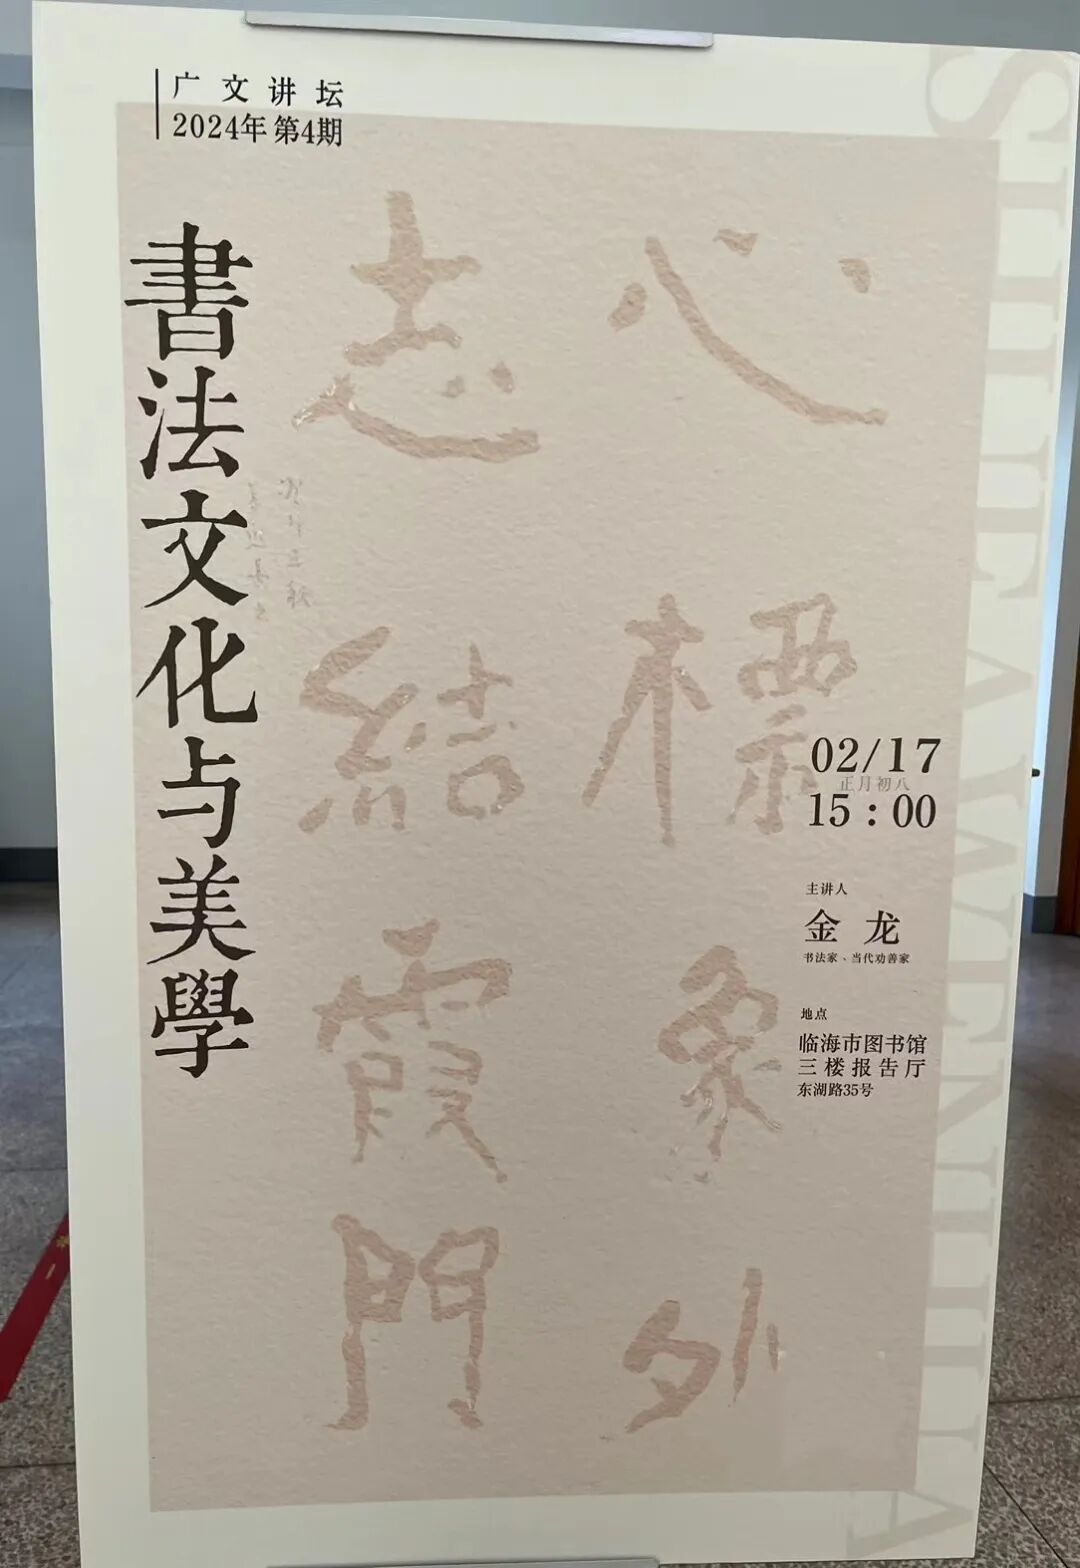 广文讲坛
2024年 第4期
書法文化与美學
心標象外
志結霞門
02/17
正月初八
15：00
主讲人
金龙
书法家、当代劝善家
地点
临海市图书馆
三楼报告厅
东湖路35号